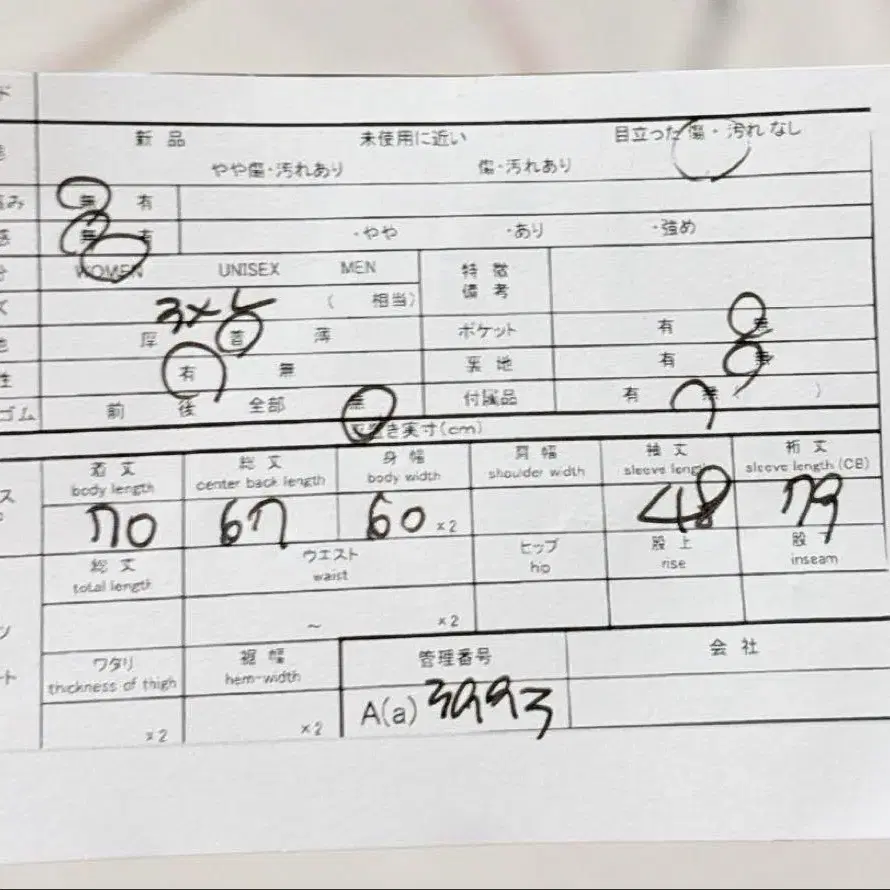 ド
新品 未使用に近い 目立った傷・汚れなし
やや傷・汚れあり 傷・汚れあり
み 無 有
感 無 有 ・やや ・あり ・強め
WOMEN UNISEX MEN 特徴
備考
3XL ( 相当)
厚 普 薄 ポケット 有 無
性 有 無 裏地 有 無
ゴム 前 後 全部 無 付属品 有 無 ( )
平置き実寸(cm)
着丈 総丈 身幅 肩幅 袖丈 裄丈
body length center back length body width shoulder width sleeve length sleeve length (CB)
70 67 60 ×2 48 79
総丈 ウエスト ヒップ 股上 股下
total length waist hip rise inseam
~ ×2
ワタリ 裾幅 管理番号 会社
thickness of thigh hem-width
×2 ×2 A(a) 3993